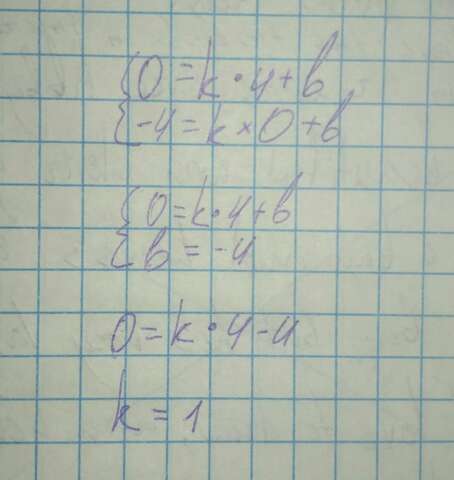 {0 = k · 4 + b
{-4 = k × 0 + b
{0 = k · 4 + b
{b = -4
0 = k · 4 - 4
k = 1